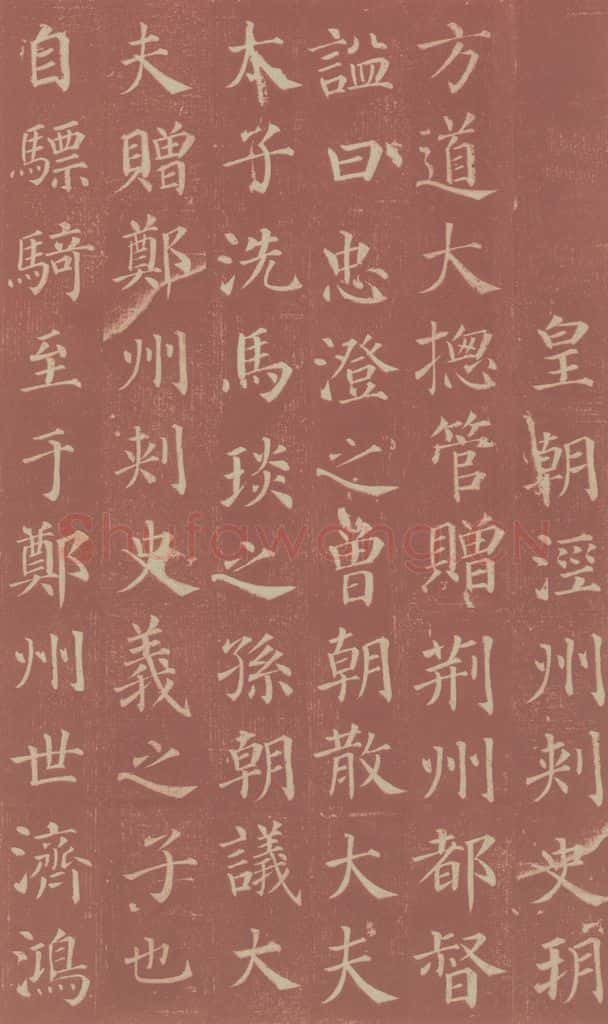 皇朝涇州刾史朔
方道大揔管贈荆州都督
謚曰忠澄之曾朝散大夫
太子洗馬琰之孫朝議大
夫贈鄭州刾史義之子也
自驃騎至于鄭州世濟鴻
Shufawang.CN